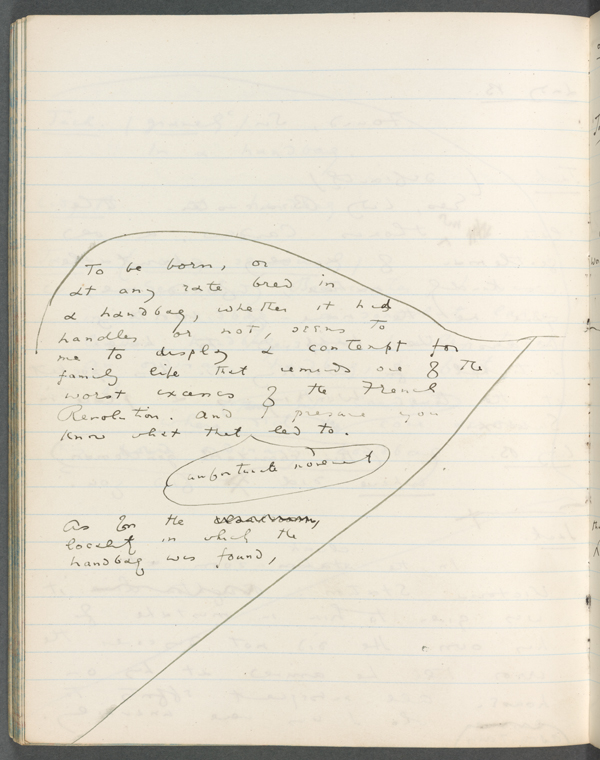 To be born, or
at any rate bred in
a handbag, whether it had
handles or not, seems to
me to display a contempt for
family life that reminds one of the
worst excesses of the French
Revolution. And I presume you
know what that led to.
unfortunate movement
As for the
locality in which the
handbag was found,